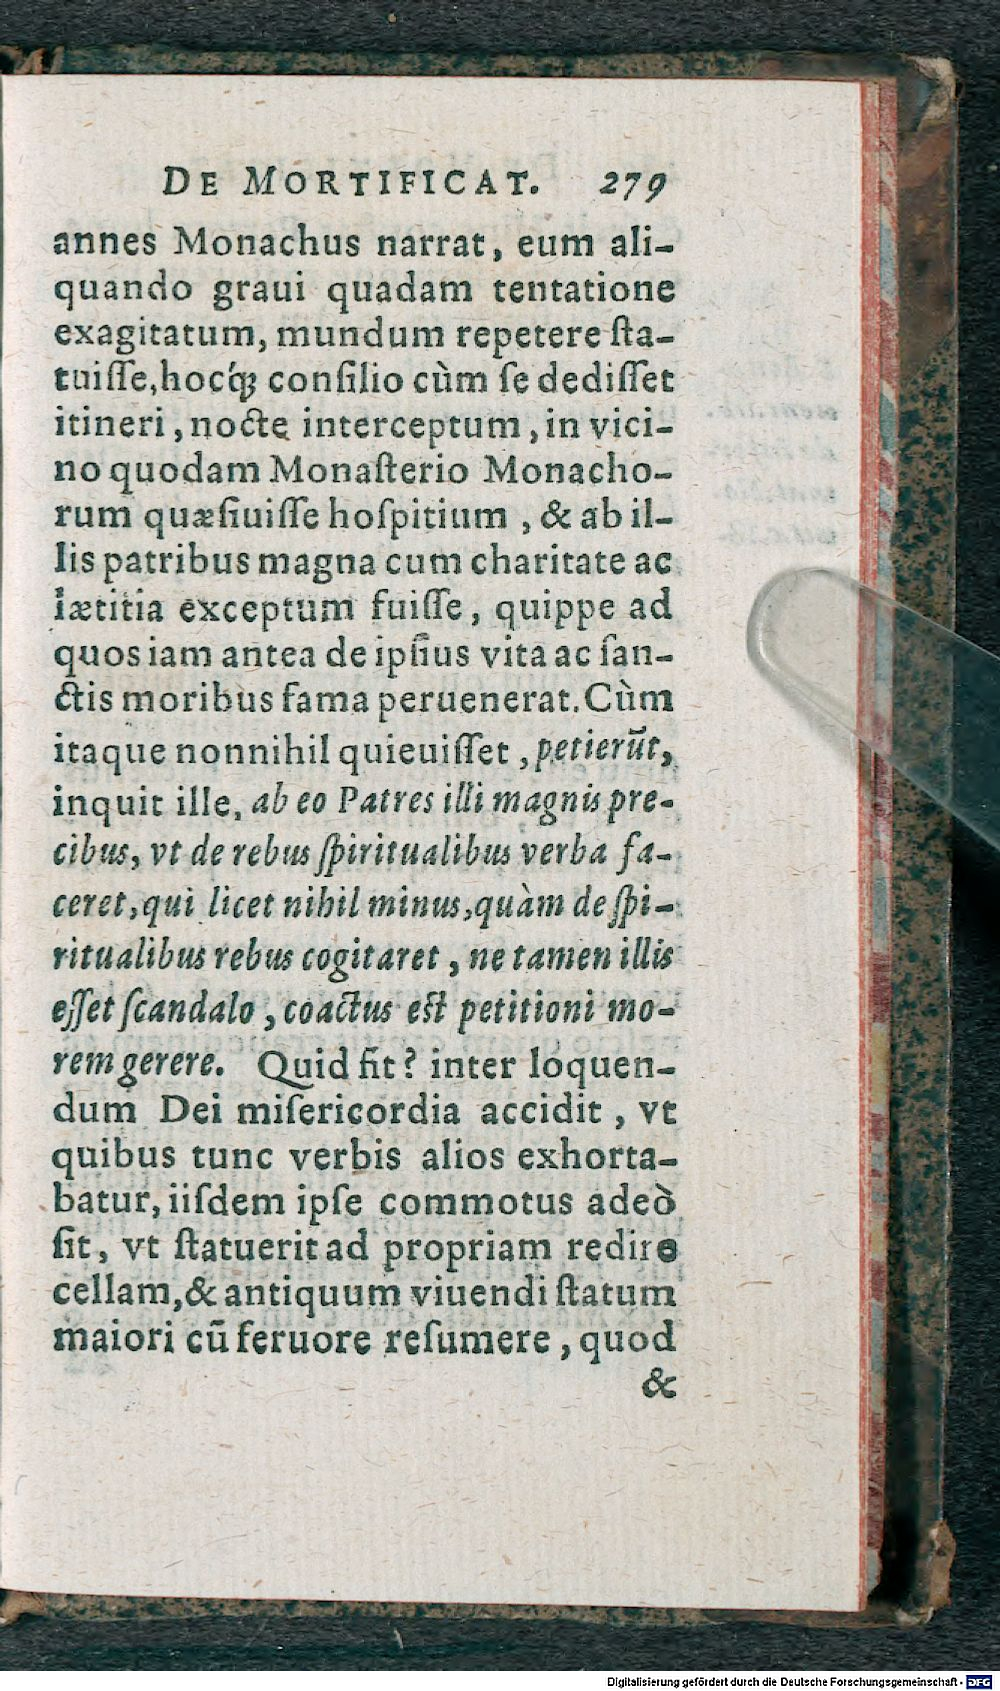 DE MORTIFICAT. 279
annes Monachus narrat, eum ali-
quando graui quadam tentatione
exagitatum, mundum repetere ſta-
tuiſſe, hocq́; conſilio cùm ſe dediſſet
itineri, nocte interceptum, in vici-
no quodam Monaſterio Monacho-
rum quæſiuiſſe hoſpitium, & ab il-
lis patribus magna cum charitate ac
lætitia exceptum fuiſſe, quippe ad
quos iam antea de ipſius vita ac ſan-
ctis moribus fama peruenerat. Cùm
itaque nonnihil quieuiſſet, petierūt,
inquit ille, ab eo Patres illi magnis pre-
cibus, vt de rebus ſpiritualibus verba fa-
ceret, qui licet nihil minus, quàm de ſpi-
ritualibus rebus cogitaret, ne tamen illis
eſſet ſcandalo, coactus eſt petitioni mo-
rem gerere. Quid fit? inter loquen-
dum Dei miſericordia accidit, vt
quibus tunc verbis alios exhorta-
batur, iiſdem ipſe commotus adeò
ſit, vt ſtatuerit ad propriam redire
cellam, & antiquum viuendi ſtatum
maiori cū feruore reſumere, quod
&
Digitalisierung gefördert durch die Deutsche Forschungsgemeinschaft - DFG